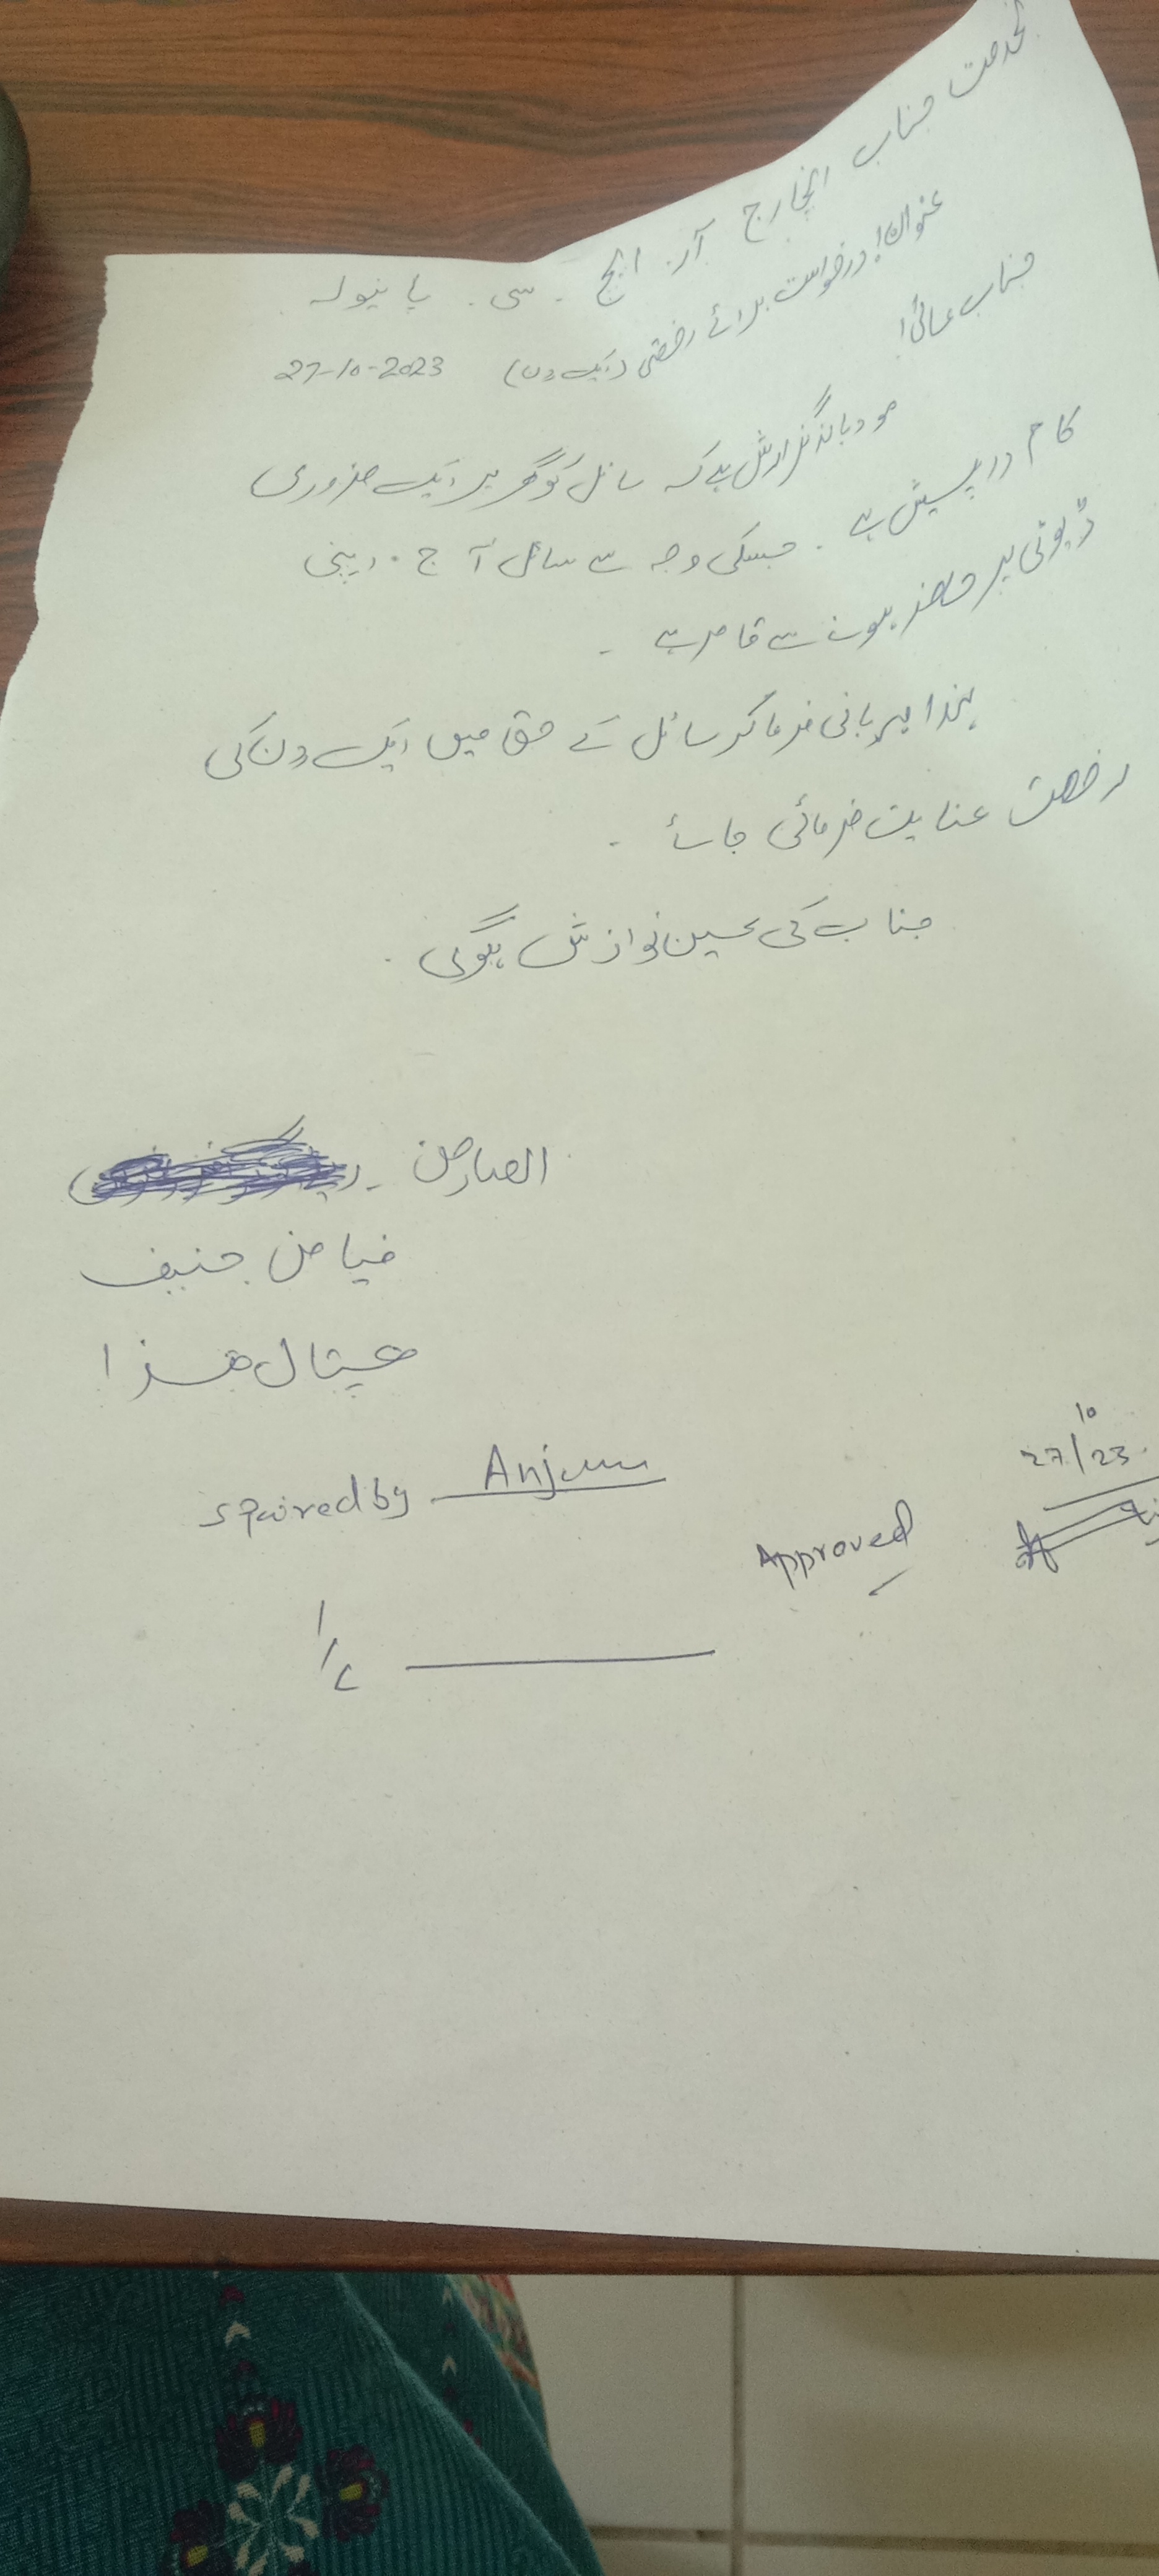 بخدمت جناب انچارج آر. ایچ. سی. پانیولہ
عنوان! درخواست برائے رخصتی (ایک دن) 27-10-2023
جناب عالی!
مودبانہ گزارش ہے کہ سائل کو گھر پر ایک ضروری
کام درپیش ہے. جسکی وجہ سے سائل آج اپنی
ڈیوٹی پر حاضر ہونے سے قاصر ہے.
لہذا مہربانی فرما کر سائل کے حق میں ایک دن کی
رخصت عنایت فرمائی جائے.
جناب کی عین نوازش ہوگی.
العارض
فیاض حنیف
ہسپتال ھذا
spaired by Anjum
Approved
27/10/23
I/C